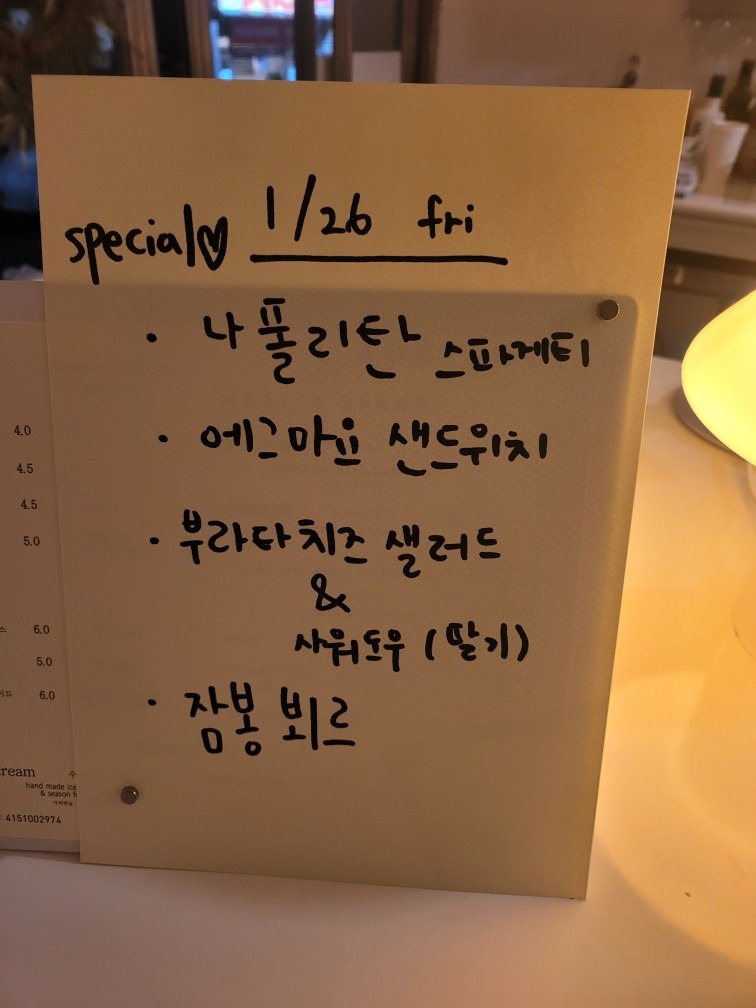 special♡ 1/26 fri
· 나폴리탄 스파게티
· 에그마요 샌드위치
· 부라타치즈 샐러드
&
사워도우 (딸기)
· 잠봉 뵈르
4.0
4.5
4.5
5.0
6.0
5.0
6.0
ream
hand made ice
& season f
4151002974